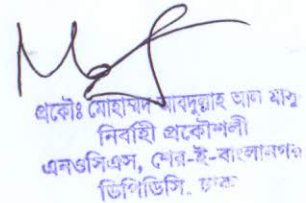 প্রকৌঃ মোহাম্মদ আবদুল্লাহ আল মামু
নির্বাহী প্রকৌশলী
এনওসিএস, শের-ই-বাংলানগর
ডিপিডিসি. ঢাকা